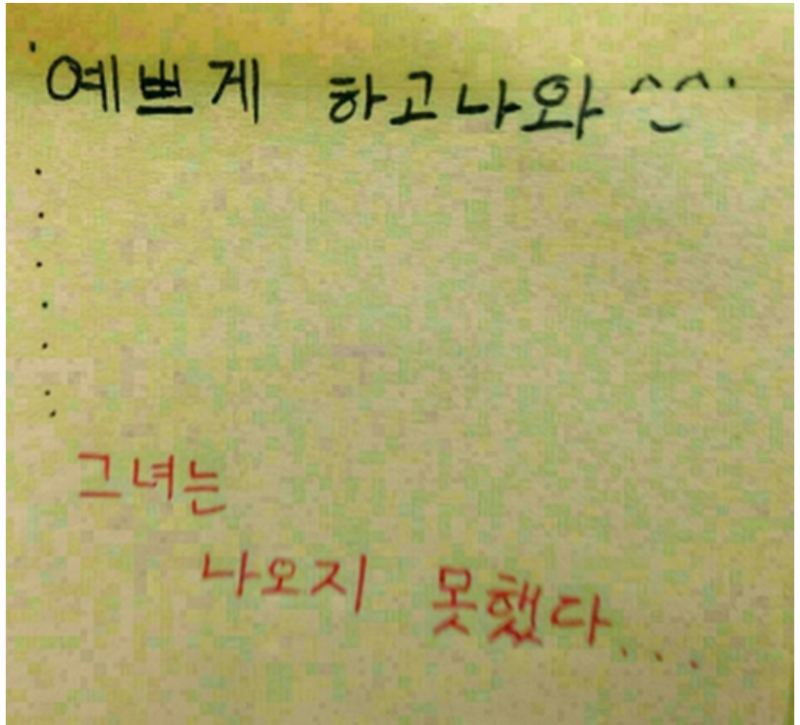 예쁘게 하고나와 ^_^
.
.
.
.
.
.
.
그녀는
나오지 못했다...